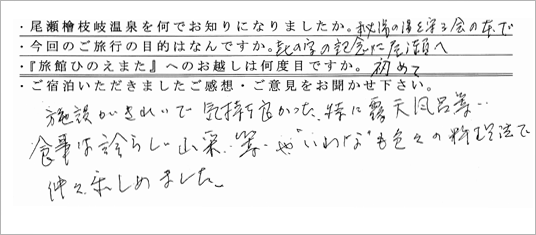 ・尾瀬檜枝岐温泉を何でお知りになりましたか。秘湯の湯を守る会の本で
・今回のご旅行の目的はなんですか。喜の字の記念に尾瀬へ
・『旅館ひのえまた』へのお越しは何度目ですか。初めて
・ご宿泊いただきましたご感想・ご意見をお聞かせ下さい。
施設がきれいで気持良かった、特に露天風呂等‥
食事は珍らしい山菜等‥や“いわな”も色々の料理法で
仲々楽しめました。